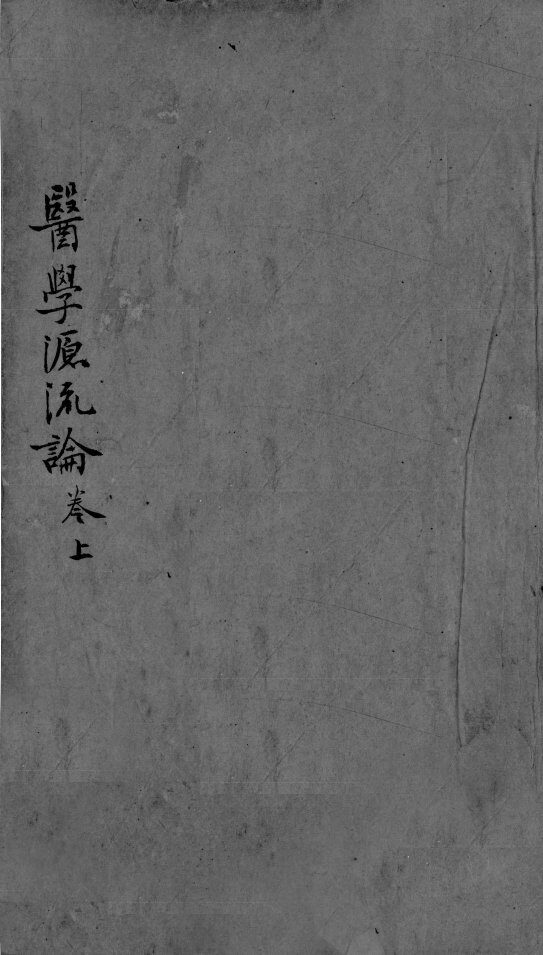 醫學源流論卷上